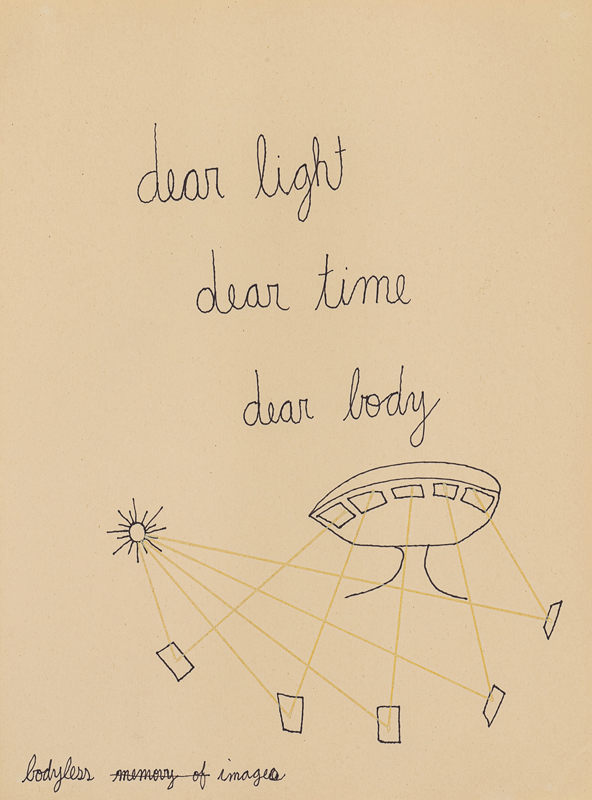 dear light
dear time
dear body
bodyless memory of images